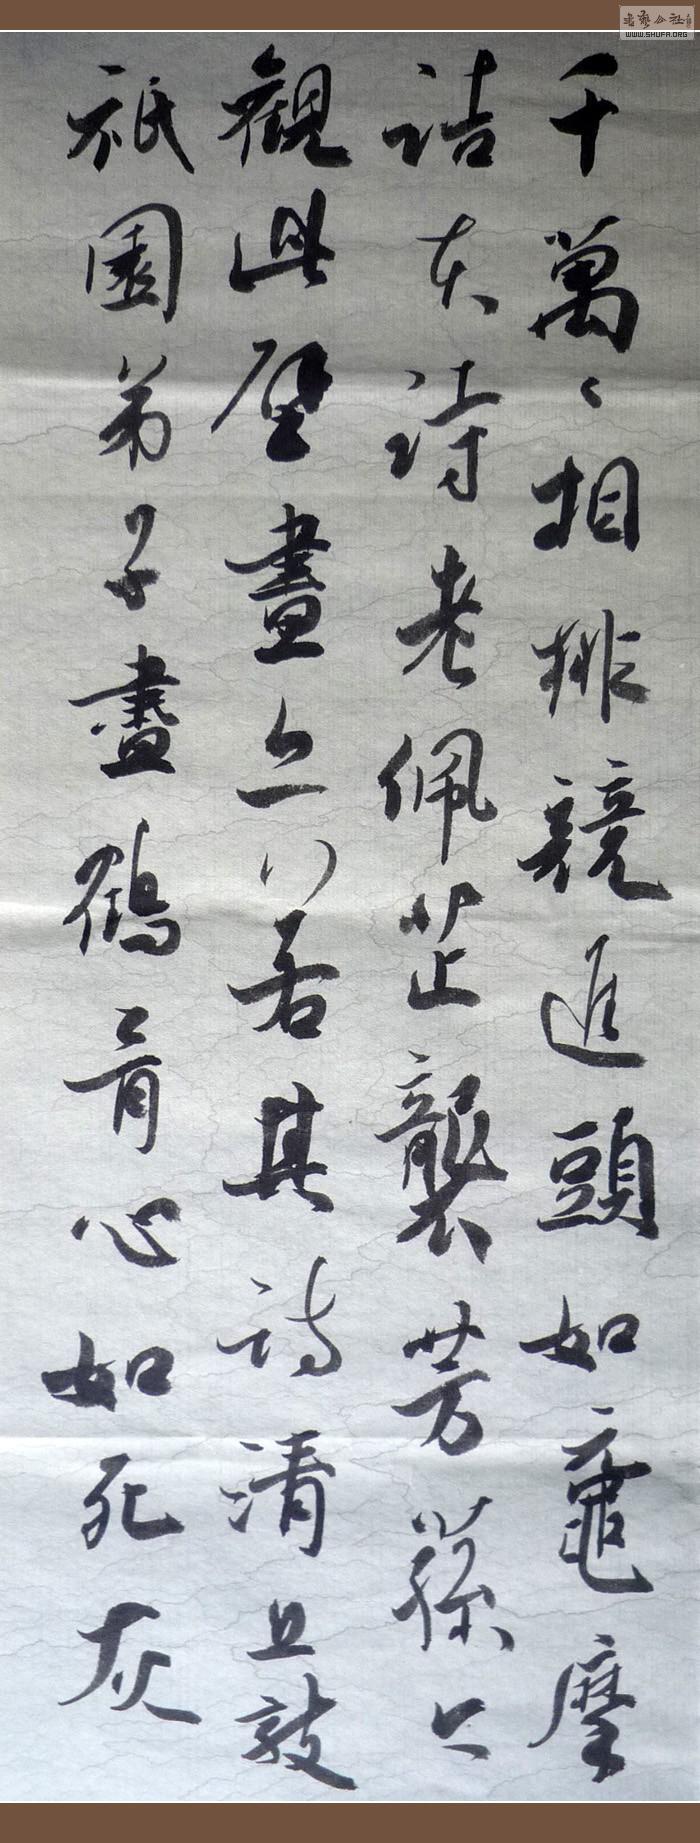 千萬〻相排競進頭如黿摩
詰本詩老佩芷襲芳蓀今
觀此壁畫亦若其詩清且敦
祇園弟子盡鶴骨心如死灰
WWW.SHUFA.ORG